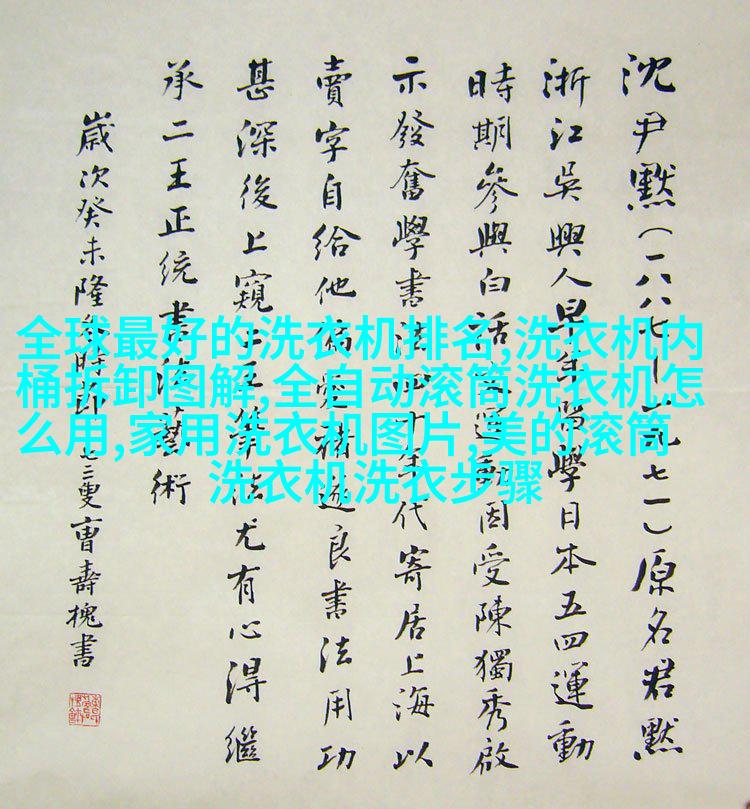 沈尹默(一八八七—一九七一)原名君默
浙江吳興人早年留學日本五四運動
時期參與白話詩運動因受陳獨秀啟
示發奮學書法四十年代寄居上海以
賣字自給他偏愛褚遂良書法用功
甚深後上窺筆法尤有心得繼
承二王正統書法藝術
歲次癸未隆冬時節曹壽槐書
全球最好的洗衣机排名,洗衣机内
桶拆卸图解,全自动滚筒洗衣机怎
么用,家用洗衣机图片,美的滚筒
洗衣机洗衣步骤